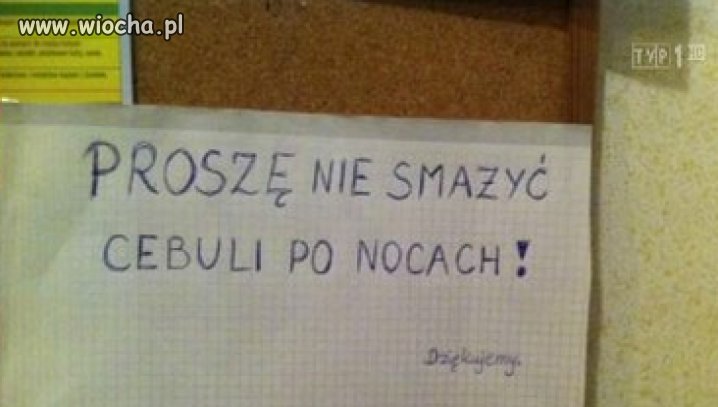 www.wiocha.pl
PROSZĘ NIE SMAŻYĆ
CEBULI PO NOCACH!
Dziękujemy.